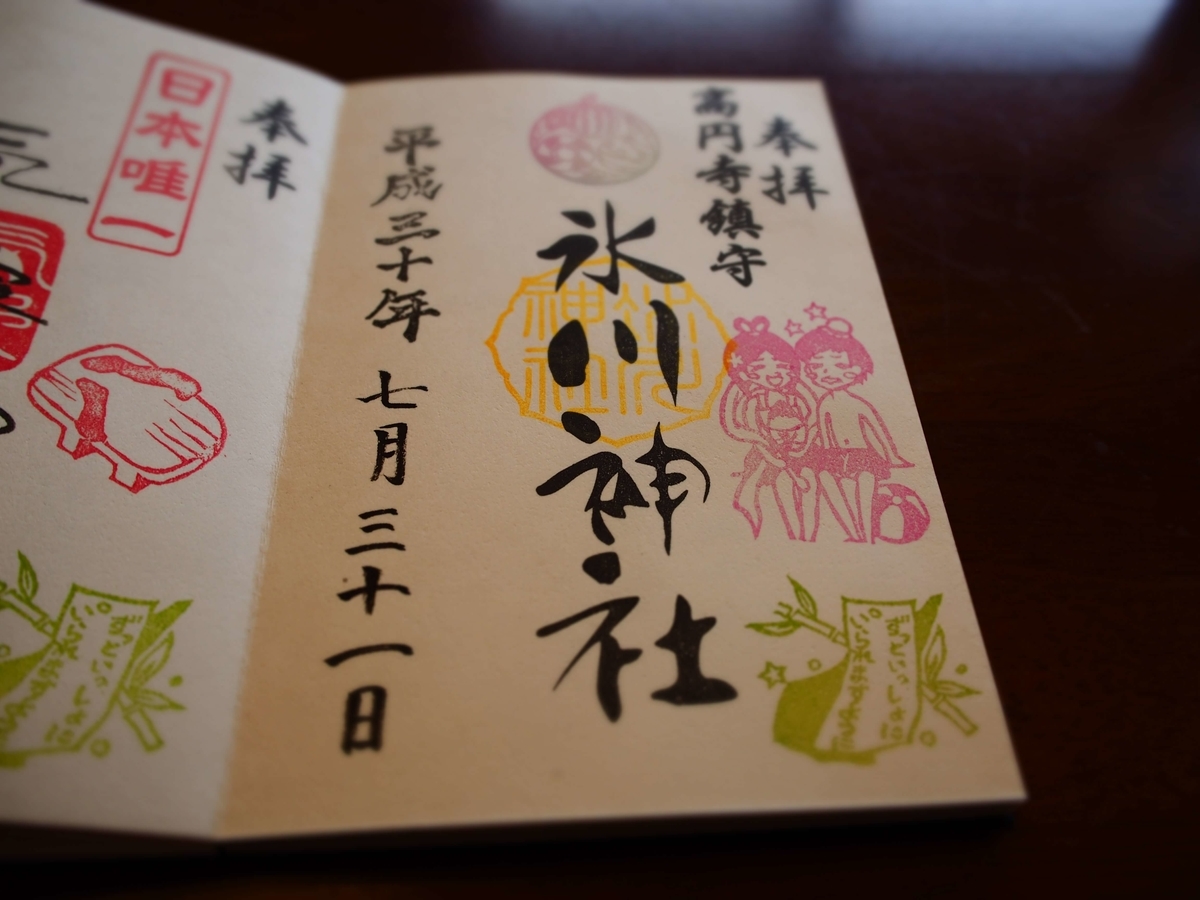 奉拝
高円寺鎮守
氷川神社
平成三十年 七月 三十一日
ずっといっしょに
いられますように
奉拝
日本唯一
ずっといっしょに
いられますように